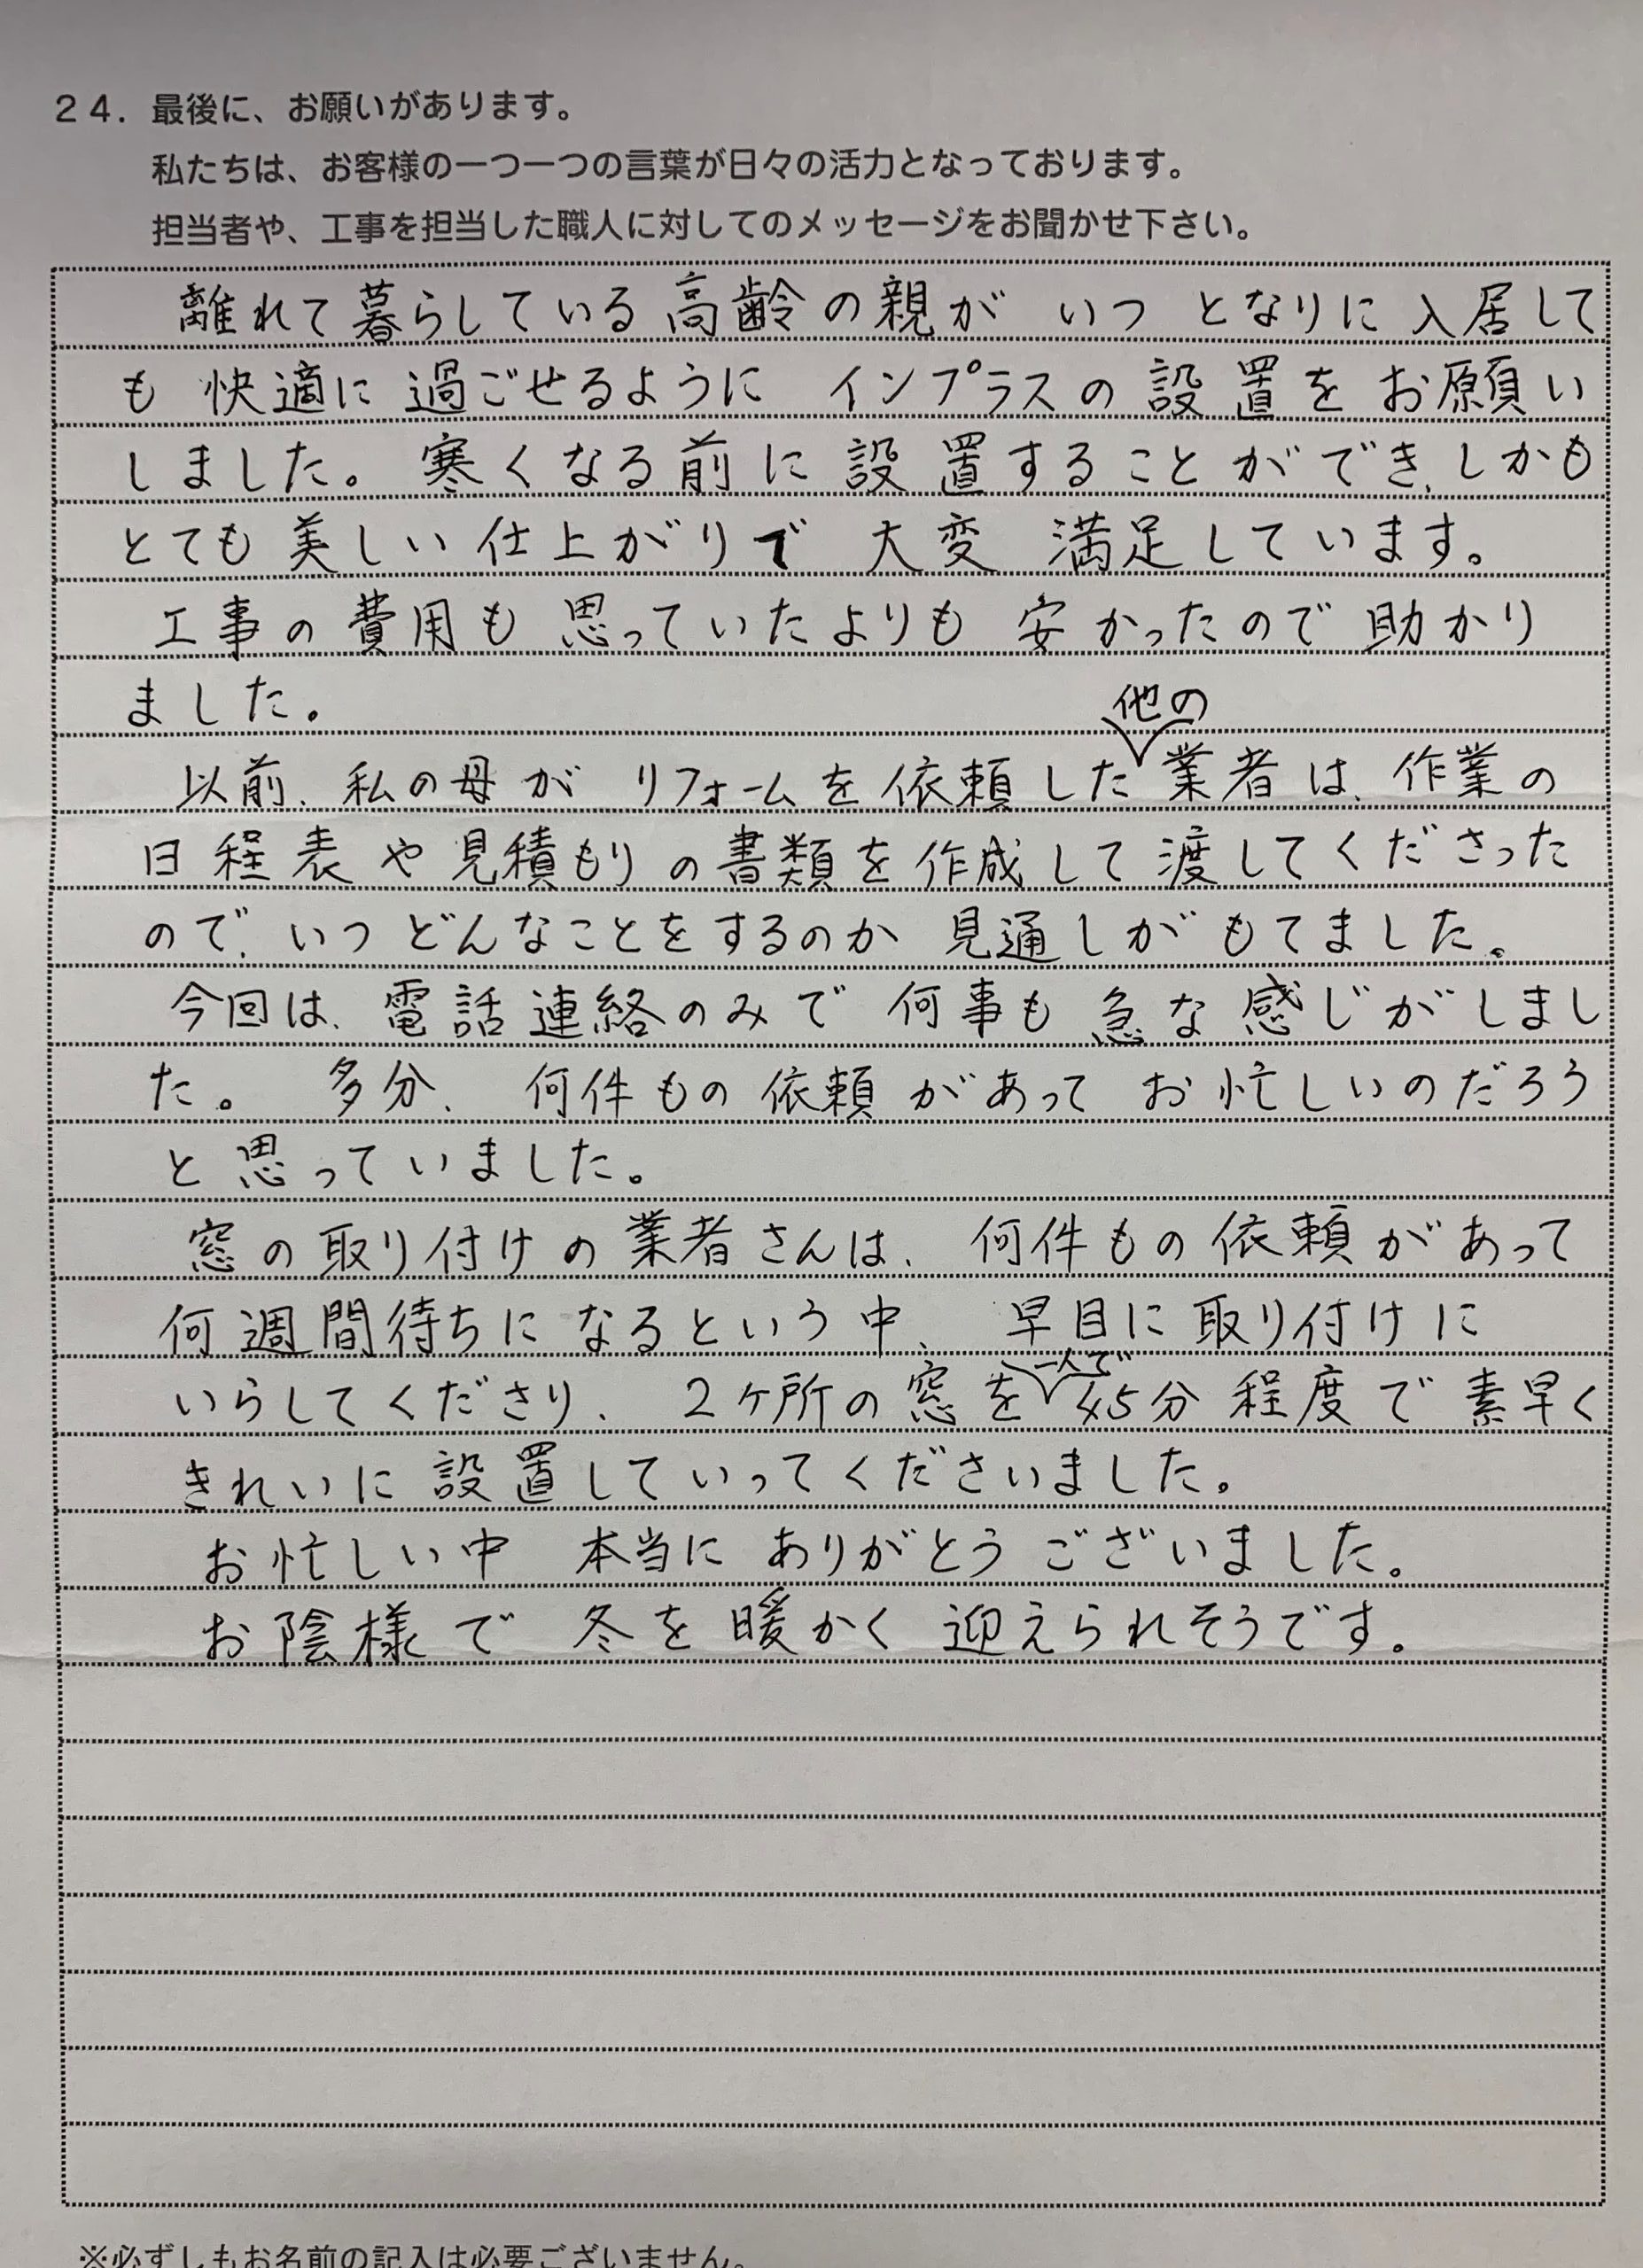 24. 最後に、お願いがあります。
私たちは、お客様の一つ一つの言葉が日々の活力となっております。
担当者や、工事を担当した職人に対してのメッセージをお聞かせ下さい。
離れて暮らしている高齢の親が いつ となりに入居して
も 快適に 過ごせるように インプラスの設置をお願い
しました。寒くなる前に設置することができ、しかも
とても美しい仕上がりで 大変 満足しています。
工事の費用も思っていたよりも 安かったので助かり
ました。
他の
以前、私の母が リフォームを依頼した業者は、作業の
日程表や見積もりの書類を作成して渡してくださった
ので、いつどんなことをするのか 見通しがもてました。
今回は、電話連絡のみで 何事も急な感じがしまし
た。 多分、 何件もの依頼があって お忙しいのだろう
と思っていました。
窓の取り付けの業者さんは、 何件もの依頼があって
何週間待ちになるという中、 早目に取り付けに
一人で
いらしてくださり、 2ヶ所の窓を45分程度で素早く
きれいに設置していってくださいました。
お忙しい中 本当に ありがとうございました。
お陰様で 冬を暖かく 迎えられそうです。
※必ずしもお名前の記入は必要ございません。